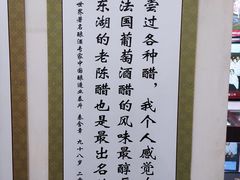 尝过各种醋，我个人感觉
法国葡萄酒醋的风味最醇
东湖的老陈醋也是最出名
世界著名酿酒专家中国酿造业泰斗 秦含章 九十八岁 二